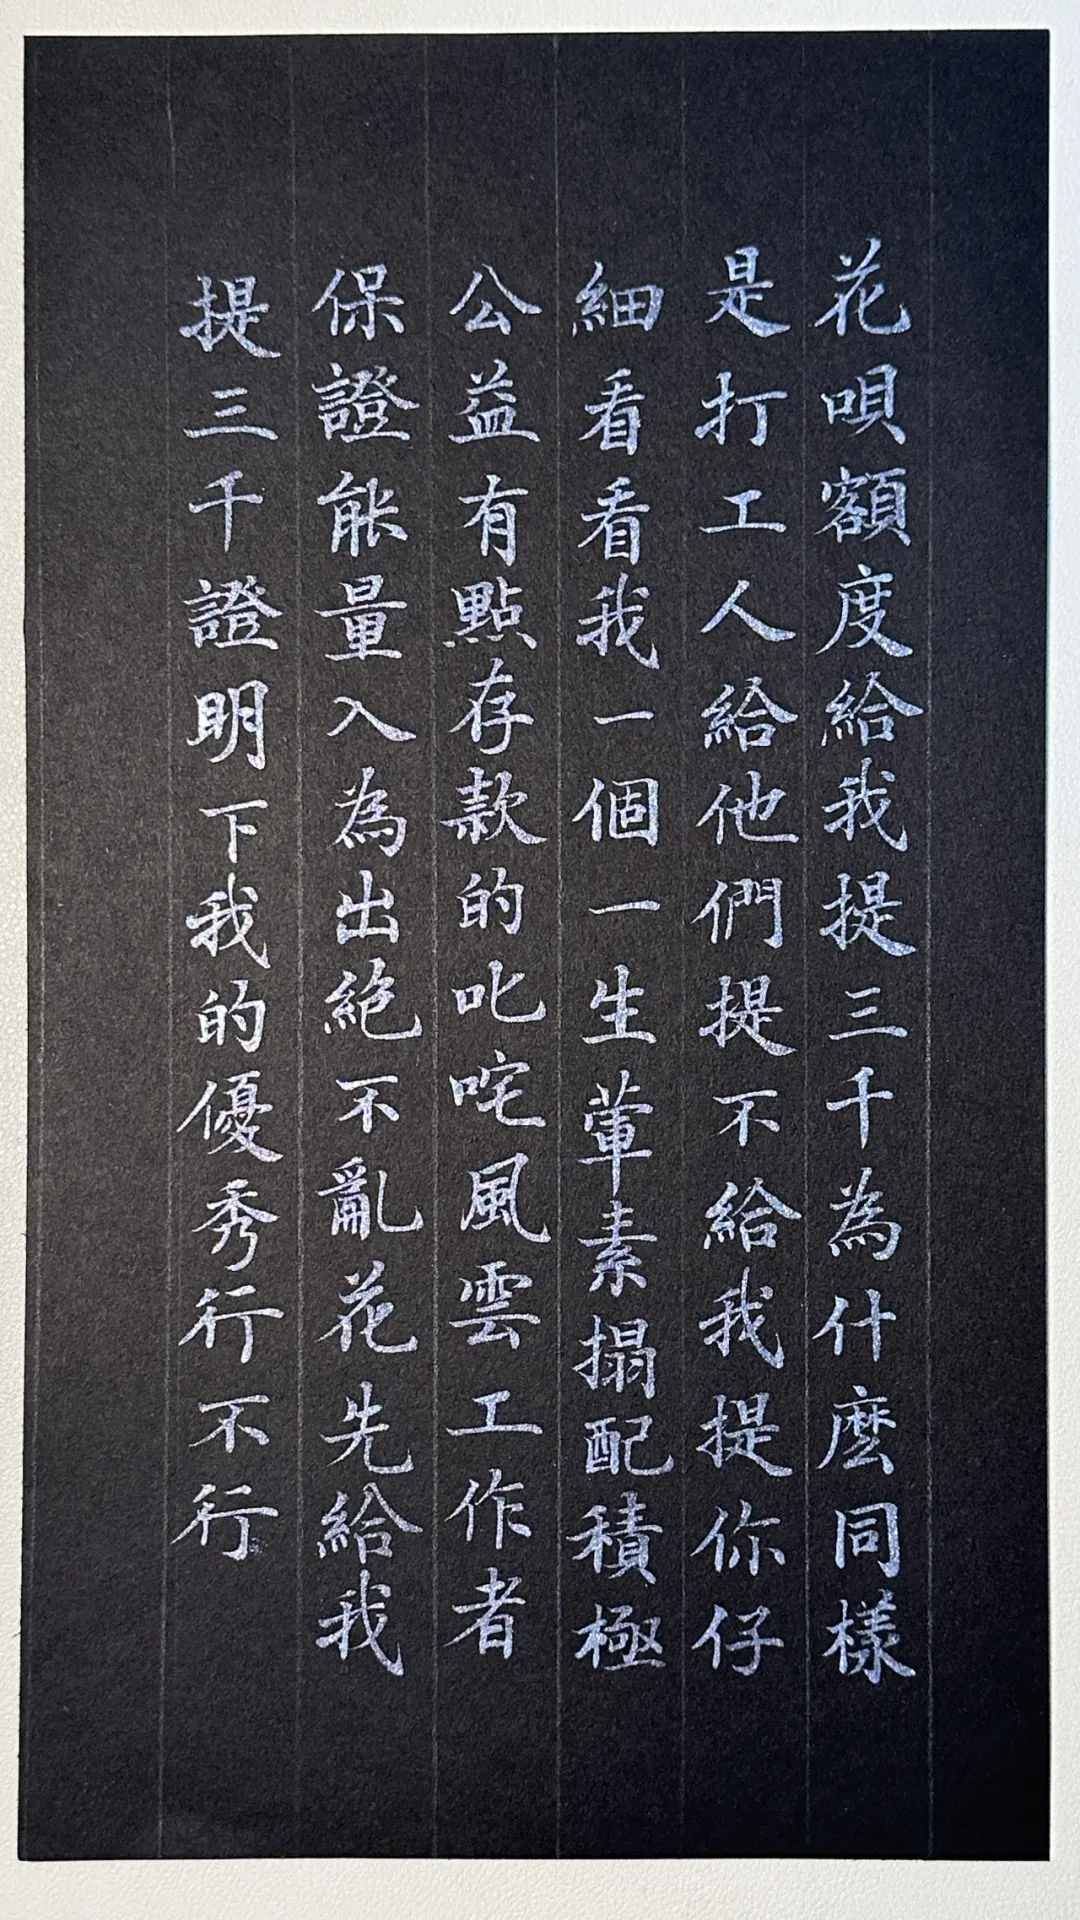 花唄額度給我提三千為什麼同樣
是打工人給他們提不給我提你仔
細看看我一個一生葷素搨配積極
公益有點存款的叱咤風雲工作者
保證能量入為出絕不亂花先給我
提三千證明下我的優秀行不行